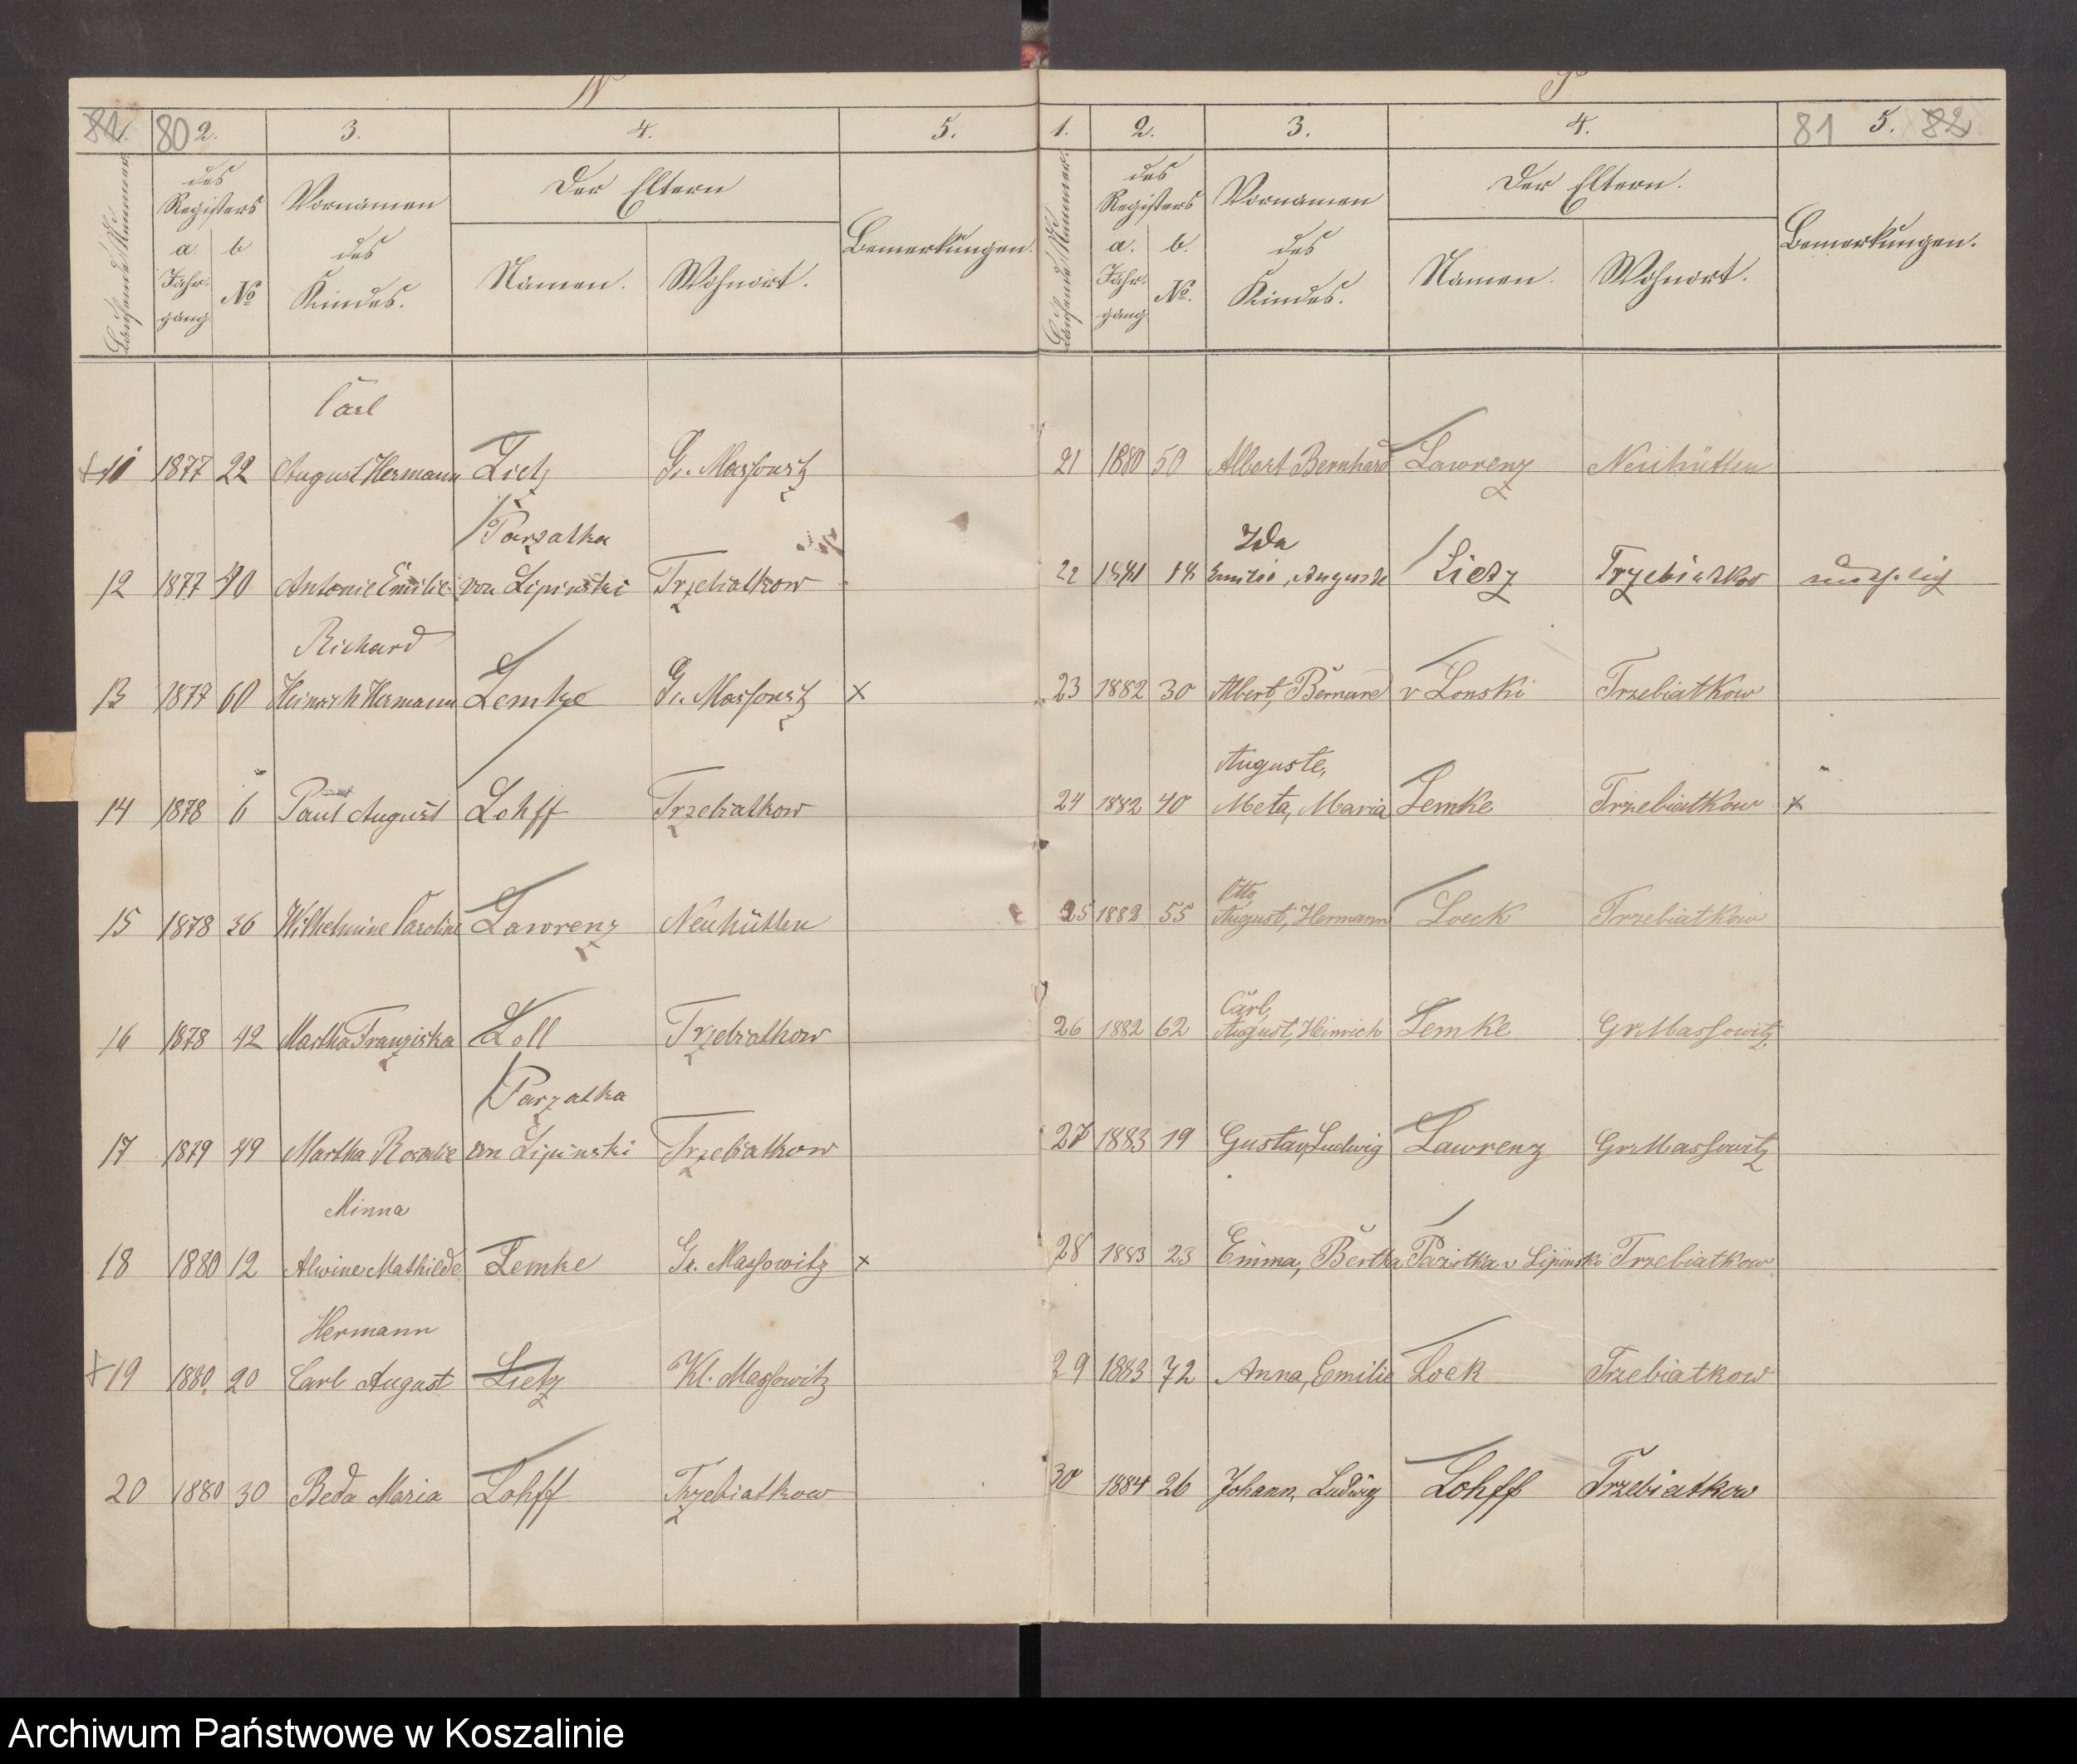 81 1. 80 2. 3. 4. 5.
Laufende Nummer.
des Registers
a Jahrgang
b No
Vornamen des Kindes.
Der Eltern
Namen. Wohnort.
Bemerkungen.
Carl
11 1877 22 August Hermann Lietz Gr. Massowitz
Parzatka
12 1877 40 Antonie Emilie von Lipinski Trzebiatkow
Richard
13 1877 60 Heinrich Hermann Lemke Gr. Massowitz x
14 1878 6 Paul August Lohff Trzebiatkow
15 1878 36 Wilhelmine Caroline Lawrenz Neuhütten
16 1878 42 Martha Franziska Loll Trzebiatkow
Parzatka
17 1879 49 Martha Rosalie von Lipinski Trzebiatkow
Minna
18 1880 12 Alwine Mathilde Lemke Gr. Massowitz x
Hermann
19 1880 20 Carl August Lietz Kl. Massowitz
20 1880 30 Beda Maria Lohff Trzebiatkow
1. 2. 3. 4. 81 5. 82
Laufende Nummer.
des Registers
a. Jahrgang
b. No.
Vornamen des Kindes.
Der Eltern.
Namen. Wohnort.
Bemerkungen.
21 1880 50 Albert Bernhard Lawrenz Neuhütten
Ida
22 1881 18 Emilie, Auguste Lietz Trzebiatkow
23 1882 30 Albert, Bernard v Lonski Trzebiatkow
Auguste,
24 1882 40 Meta, Maria Lemke Trzebiatkow x
Otto,
25 1882 55 August, Hermann Loeck Trzebiatkow
Carl,
26 1882 62 August, Heinrich Lemke Gr Massowitz
27 1883 19 Gustav, Ludwig Lawrenz Gr Massowitz
28 1883 23 Emma, Bertha Parzotka v Lipinski Trzebiatkow
29 1883 72 Anna, Emilie Loek Trzebiatkow
30 1884 26 Johann, Ludwig Lohff Trzebiatkow
Archiwum Państwowe w Koszalinie